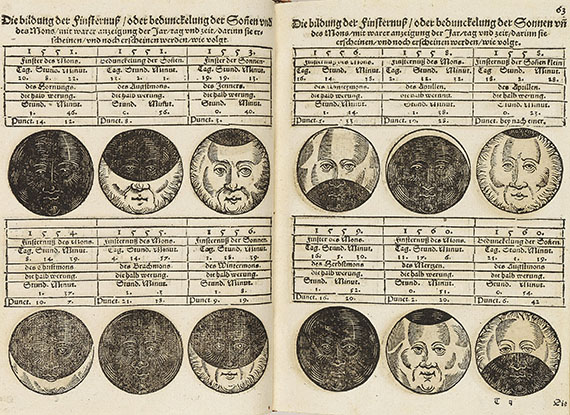 Die bildung der Finsternuß / oder bedunckelung der Soñen vnd
des Mons / mit warer anzeigung der Jar / tag vnd zeit / darinn sie er-
scheinen / vnd noch erscheinen werden / wie volgt.
1 5 5 1. 1 5 5 1. 1 5 5 3.
Finster des Mons. Bedunckelung der Soñen. Finster der Sonnen
Tag. Stund. Minut. Tag. Stund. Minut. Tag. Stund. Minut.
des Hornungs. des Augstmons. des Jenners.
die halb werung. die halb werung. die halb werung.
Stund. Minut. Stund. Minut. Stund. Minut.
1. 46. 0. 56. 0. 40.
Punct. 14. 12. Punct. 8. Punct. 3.
1 5 5 4. 1 5 5 4. 1 5 5 6.
Finsternuß des Mons. Finsternuß des Mons. Finsternuß der Sonnen
Tag. Stund. Minut. Tag. Stund. Minut. Tag. Stund. Minut.
des Christmons des Brachmons des Wintermons.
die halb werung. die halb werung. die halb werung.
Stund. Minut. Stund. Minut. Stund. Minut.
1. 37. 2. 1. 54.
Punct. 10. 7. Punct. 21. 38. Punct. 9. 19.
63
Die bildung der Finsternuß / oder bedunckelung der Sonnen vñ
des Mons / mit warer anzeigung der Jar / tag vnd zeit / darinn sie
erscheinen / vnd noch erscheinen werden / wie volgt.
1 5 5 6. 1 5 5 8. 1 5 5 8.
Finsternuß des Mons. Finsternuß des Mons. Finsternuß der Soñen klein
Tag. Stund. Minut. Tag. Stund. Minut. Tag. Stund. Minut.
des Wintermons. des Apꝛillen. des Apꝛillen.
die halb werung. die halb werung. die halb werung.
Punct. bey nach einer.
1 5 5 9. 1 5 6 0. 1 5 6 0.
Finster des Mons. Finsternuß des Mons. Bedunckelung der Soñen.
Tag. Stund. Minut. Tag. Stund. Minut. Tag. Stund. Minut.
des Herbstmons des Mertzen. des Augstmons
die halb werung. die halb werung. die halb werung.
Stund. Minut. Stund. Minut. Stund. Minut.
1. 52. 0. 51. 0. 54.
Punct. 16. 20. Punct. 2. 20. Punct. 6. 42
Die